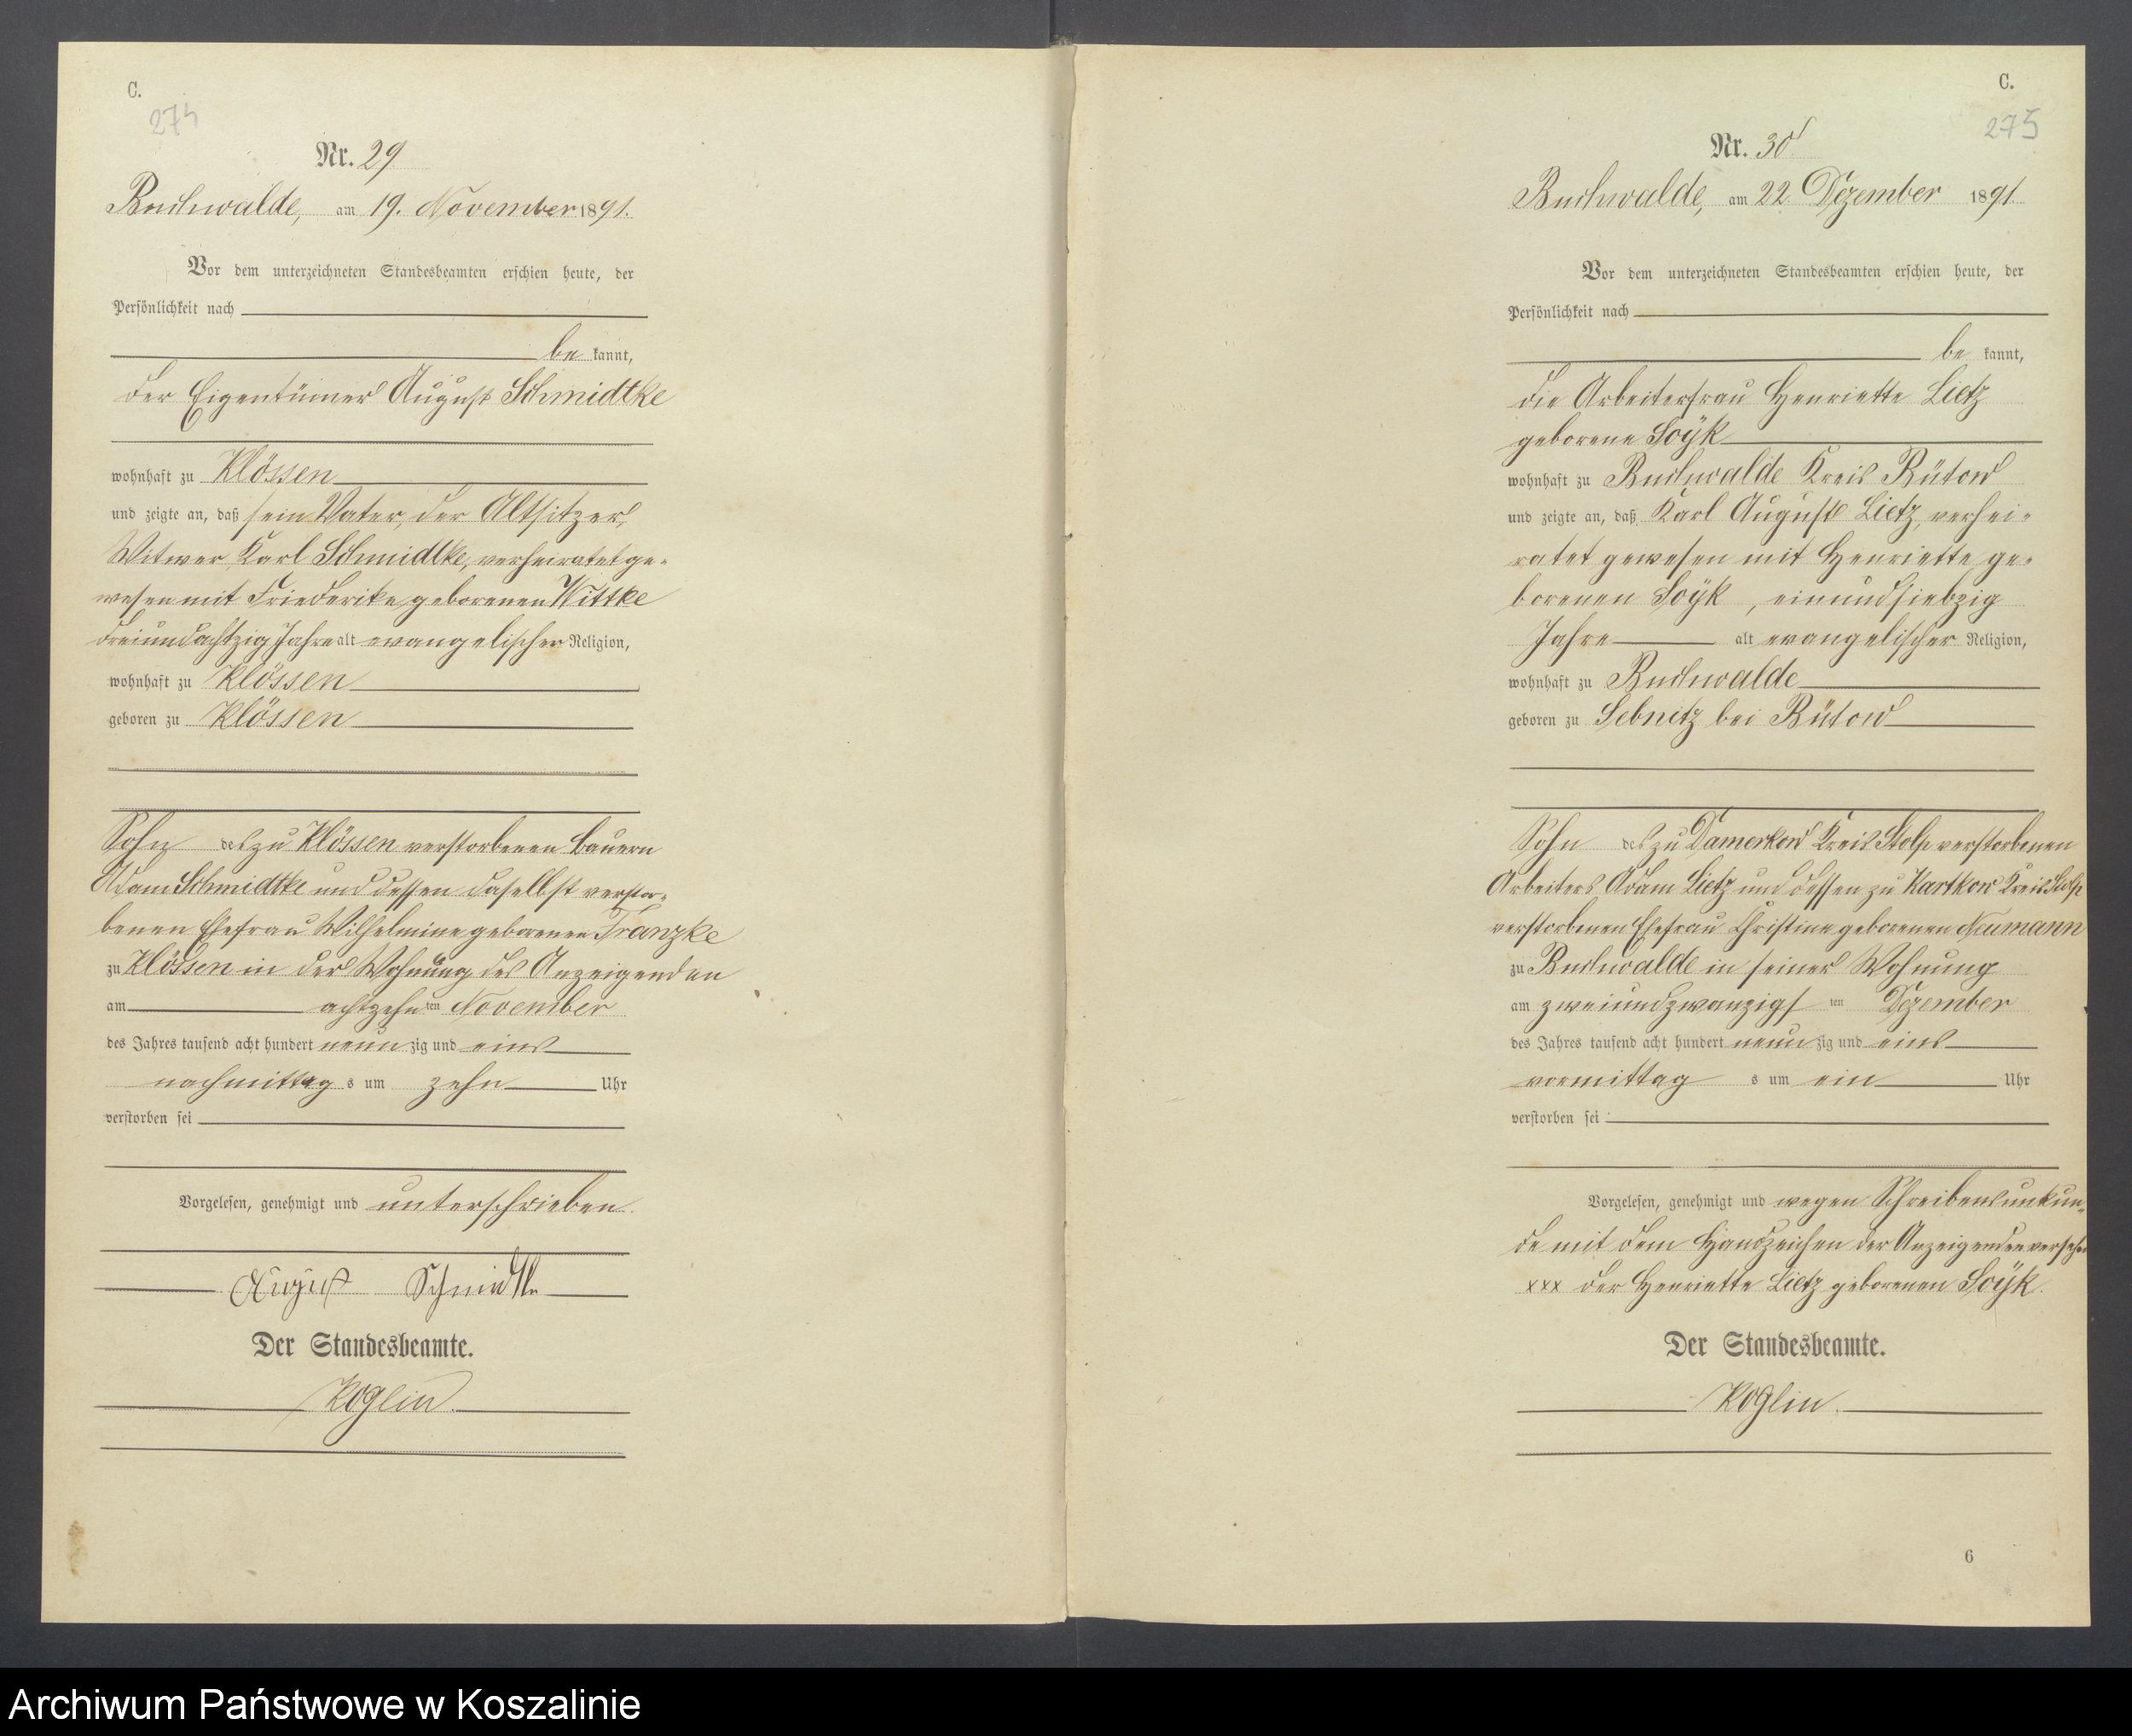 C.
274
Nr. 29
Buchwalde, am 19. November 1891.
Vor dem unterzeichneten Standesbeamten erschien heute, der
Persönlichkeit nach
be kannt,
der Eigentümer August Schmidtke
wohnhaft zu Klössen
und zeigte an, daß sein Vater, der Altsitzer,
Witwer, Karl Schmidtke, verheiratet ge-
wesen mit Friederike geborenen Wittke
dreiundachtzig Jahre alt evangelischer Religion,
wohnhaft zu Klössen
geboren zu Klössen
Sohn des zu Klössen verstorbenen Bauern
Adam Schmidtke und dessen daselbst verstor-
benen Ehefrau Wilhelmine geborenen Franzke
zu Klössen in der Wohnung des Anzeigenden
am achtzehn ten November
des Jahres tausend acht hundert neun zig und eins
nachmittag s um zehn Uhr
verstorben sei
Vorgelesen, genehmigt und unterschrieben.
August Schmidtke
Der Standesbeamte.
Koglin.
C.
275
Nr. 30
Buchwalde, am 22 Dezember 1891
Vor dem unterzeichneten Standesbeamten erschien heute, der
Persönlichkeit nach
be kannt,
die Arbeiterfrau Henriette Lietz
geborene Soÿk
wohnhaft zu Buchwalde Kreis Bütow
und zeigte an, daß Karl August Lietz, verhei-
ratet gewesen mit Henriette ge-
borenen Soÿk, einundsiebzig
Jahre alt evangelischer Religion,
wohnhaft zu Buchwalde
geboren zu Sebnitz bei Bütow
Sohn des zu Damerkow Kreis Stolp verstorbenen
Arbeiters Adam Lietz und dessen zu Kartkow Kreis Stolp
verstorbenen Ehefrau Christine geborenen Neumann
zu Buchwalde in seiner Wohnung
am zweiundzwanzigs ten Dezember
des Jahres tausend acht hundert neun zig und eins
vormittag s um ein Uhr
verstorben sei
Vorgelesen, genehmigt und wegen Schreibensunkun-
de mit dem Handzeichen der Anzeigenden versehen
xxx der Henriette Lietz geborenen Soÿk.
Der Standesbeamte.
Koglin.
6
Archiwum Państwowe w Koszalinie